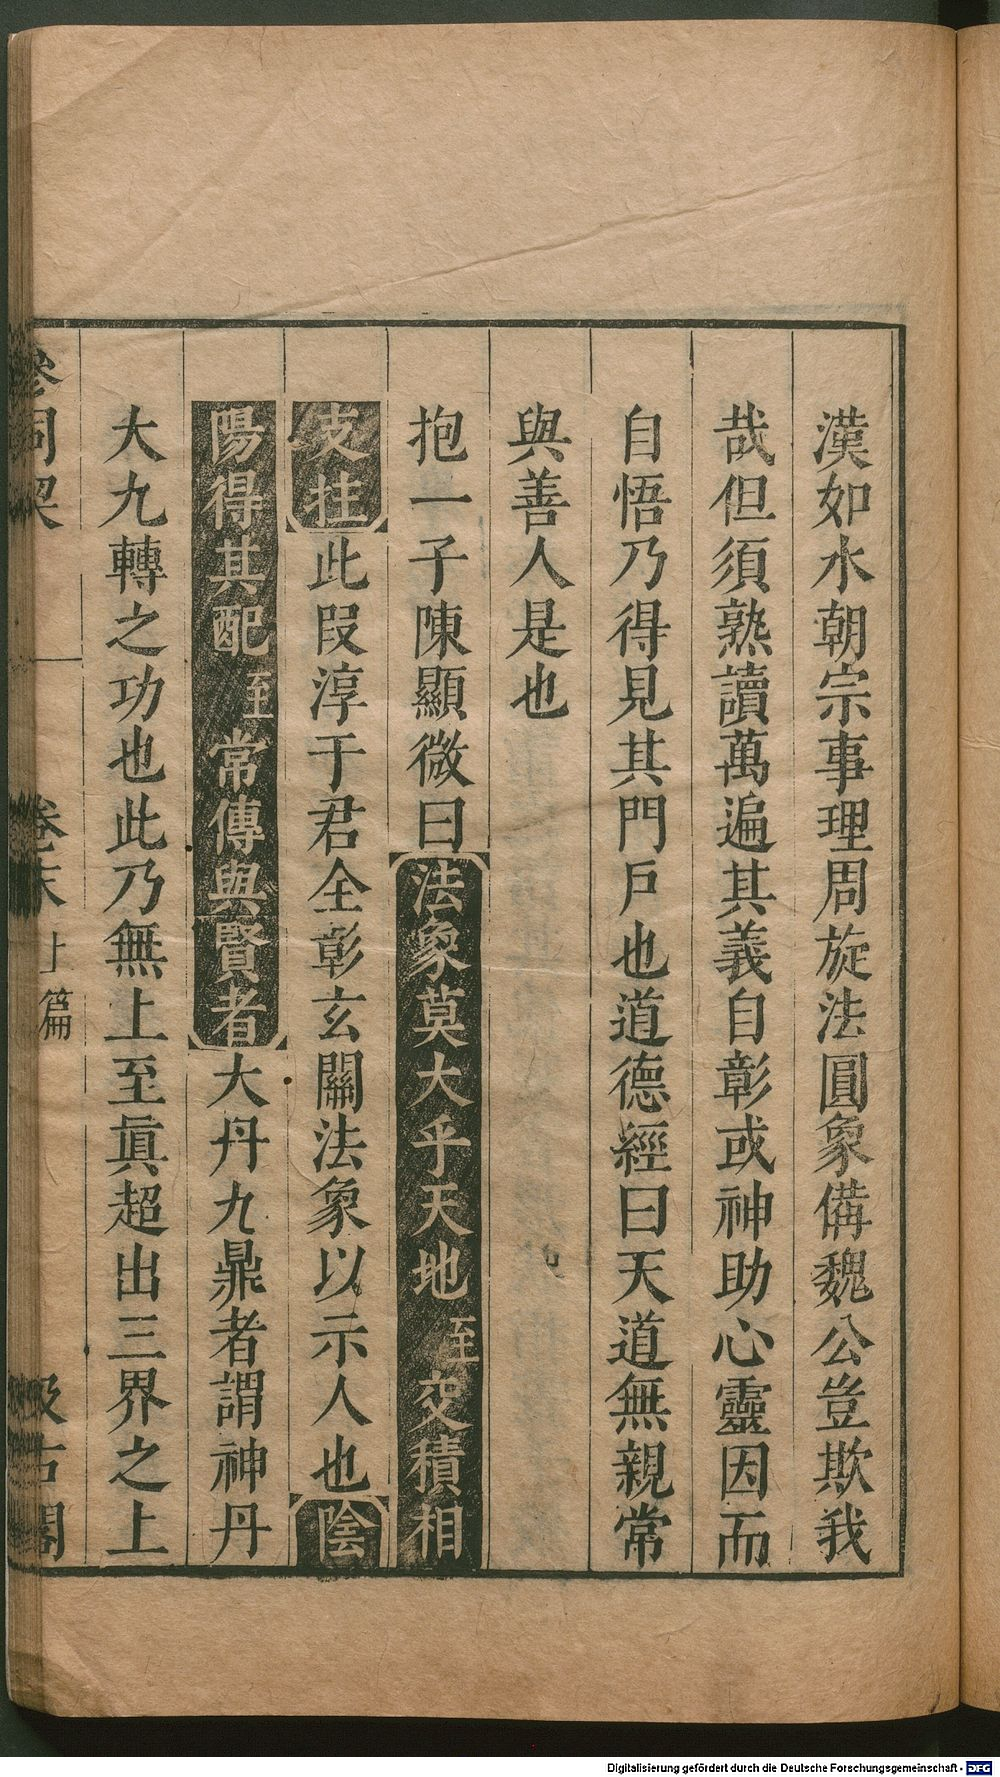 漢如水朝宗事理周旋法圓象備魏公豈欺我
哉但須熟讀萬遍其義自彰或神助心靈因而
自悟乃得見其門戶也道德經曰天道無親常
與善人是也
抱一子陳顯微曰法象莫大乎天地至交積相
支拄此段淳于君全彰玄關法象以示人也陰
陽得其配至常傳與賢者大丹九鼎者謂神丹
大九轉之功也此乃無上至眞超出三界之上
參同契 卷末上篇 汲古閣
Digitalisierung gefördert durch die Deutsche Forschungsgemeinschaft - DFG